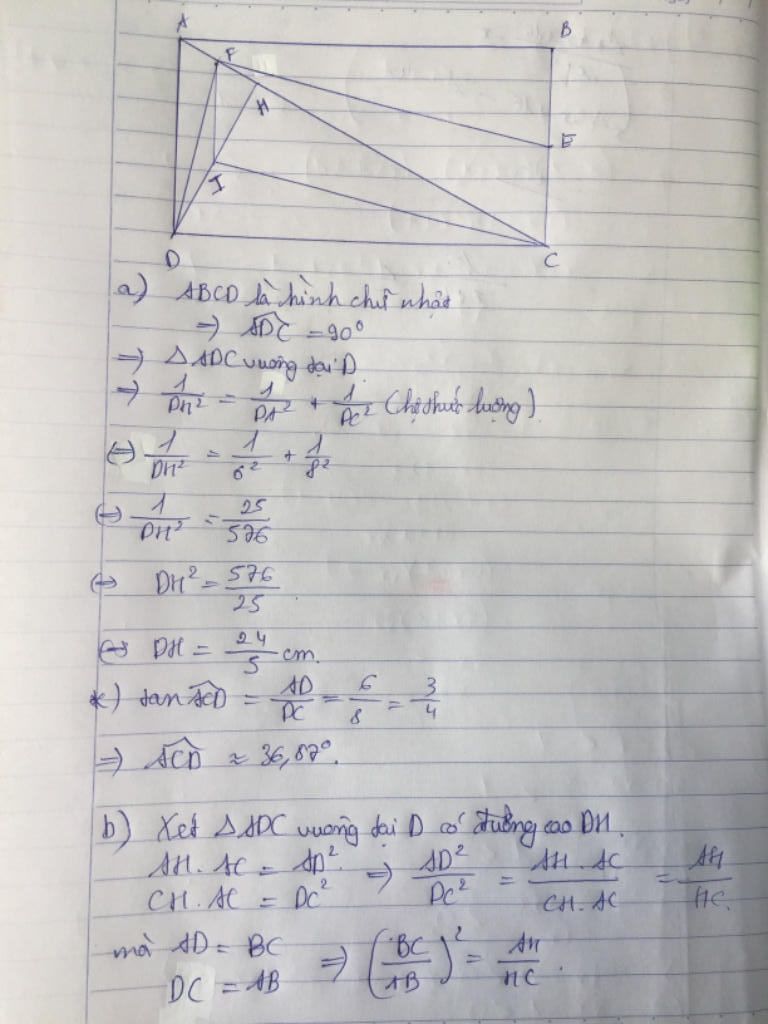 A
B
F
H
E
I
D
C
a) ABCD là hình chữ nhật
⇒ \widehat{ADC} = 90°
⇒ △ADC vuông tại D
⇒ 1/DH² = 1/DA² + 1/DC² (hệ thức lượng)
⇔ 1/DH² = 1/6² + 1/8²
⇔ 1/DH² = 25/576
⇔ DH² = 576/25
⇔ DH = 24/5 cm.
*) tan \widehat{ACD} = AD/DC = 6/8 = 3/4
⇒ \widehat{ACD} ≈ 36,87°.
b) Xét △ADC vuông tại D có đường cao DH.
AH . AC = AD² ⇒ AD²/DC² = AH . AC/CH . AC = AH/HC.
CH . AC = DC²
mà AD = BC ⇒ (BC/AB)² = AH/HC.
DC = AB